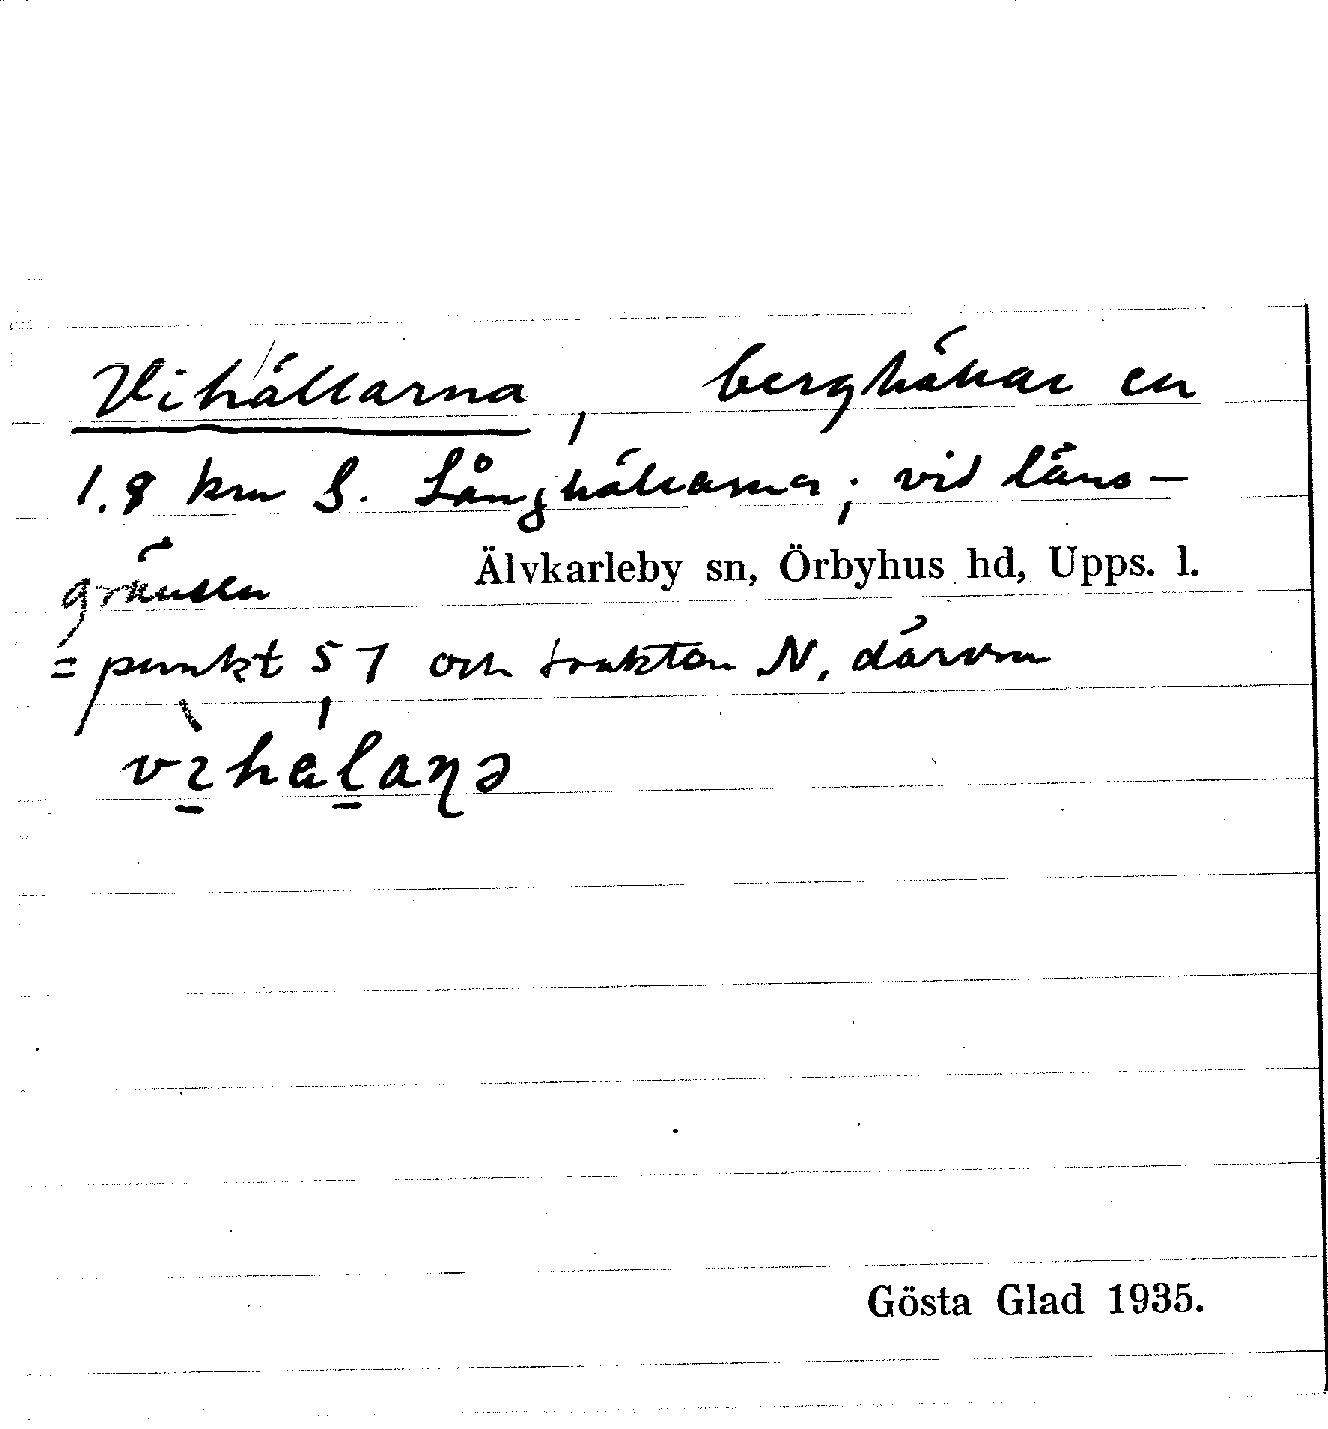 Vihällarna, berghällar en
1.8 km S. Långhällarna; vid läns-
gränsen Älvkarleby sn, Örbyhus hd, Upps. l.
= punkt 57 och trakten N. därom
vìhálaṇə
Gösta Glad 1935.